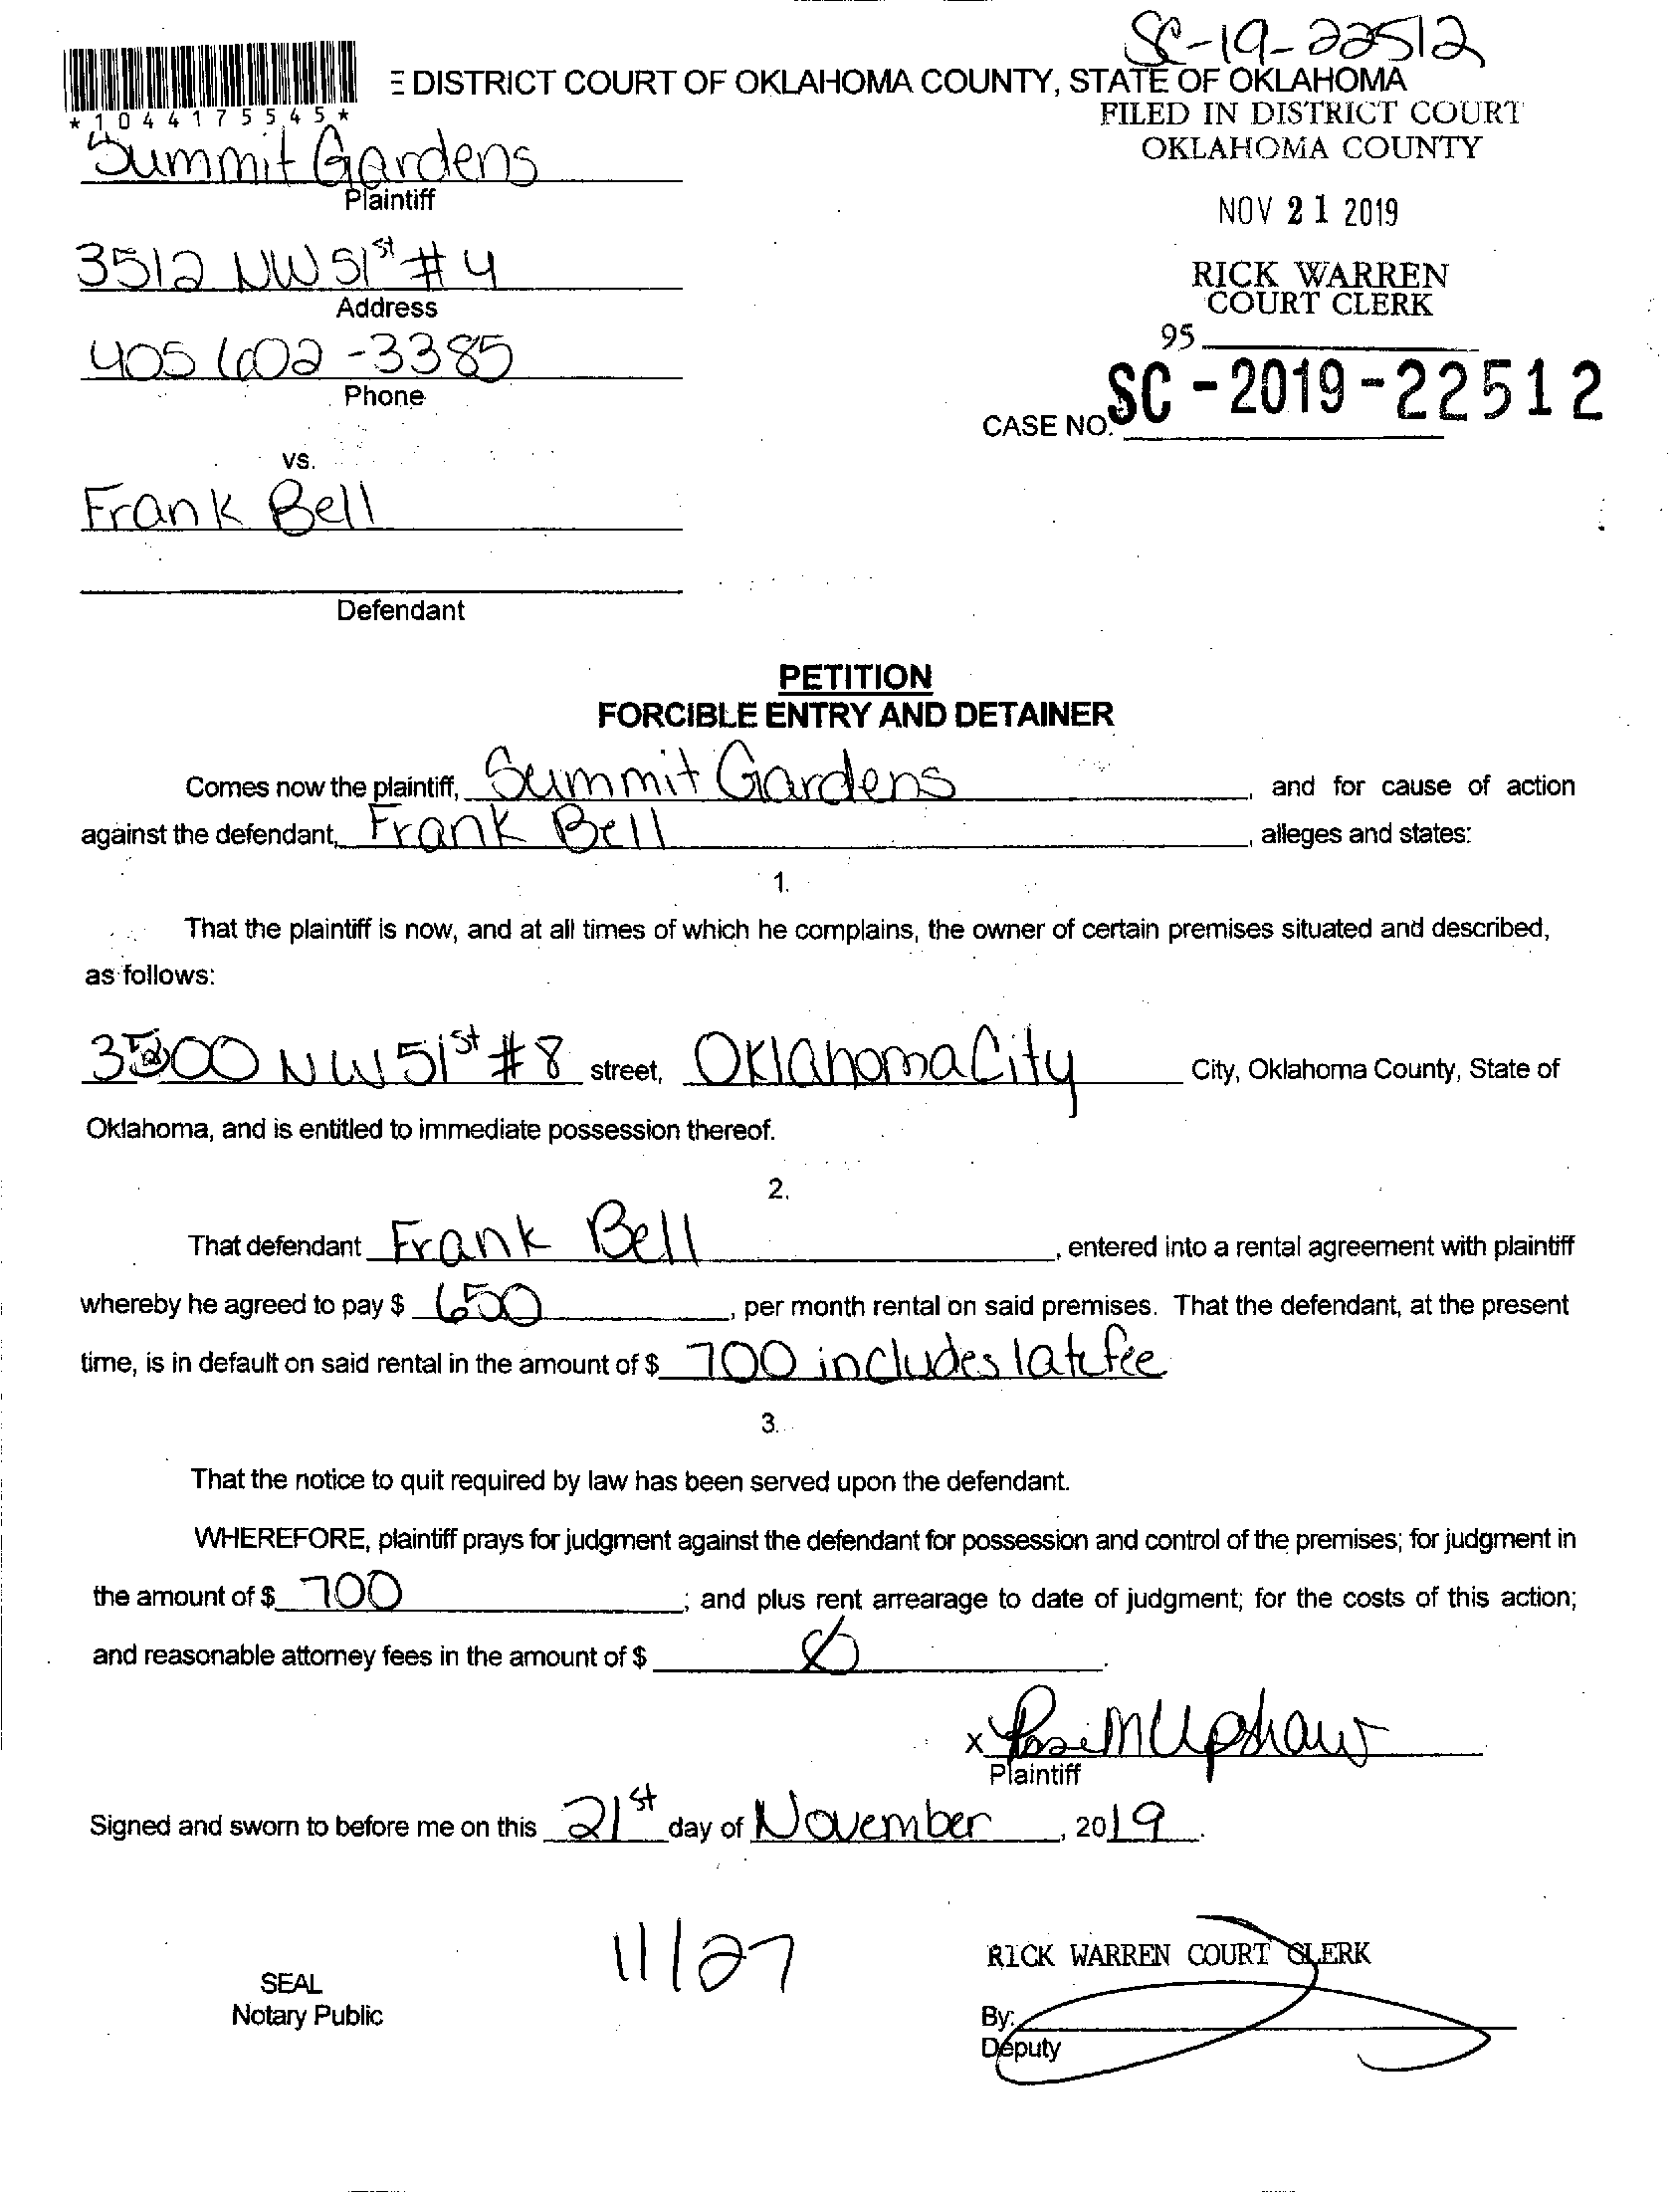 SC-19-22512
E DISTRICT COURT OF OKLAHOMA COUNTY, STATE OF OKLAHOMA
*1044175545*
FILED IN DISTRICT COURT
OKLAHOMA COUNTY
Summit Gardens
Plaintiff
NOV 21 2019
3512 NW 51st #4
Address
RICK WARREN
COURT CLERK
405 602-3385
Phone
95
CASE NO. SC-2019-22512
vs.
Frank Bell
Defendant
PETITION
FORCIBLE ENTRY AND DETAINER
Comes now the plaintiff, Summit Gardens, and for cause of action
against the defendant, Frank Bell, alleges and states:
1.
That the plaintiff is now, and at all times of which he complains, the owner of certain premises situated and described,
as follows:
NW 51st #8 street, Oklahoma City City, Oklahoma County, State of
Oklahoma, and is entitled to immediate possession thereof.
2.
That defendant Frank Bell, entered into a rental agreement with plaintiff
whereby he agreed to pay $ 650, per month rental on said premises. That the defendant, at the present
time, is in default on said rental in the amount of $ 700 includes late fee
3.
That the notice to quit required by law has been served upon the defendant.
WHEREFORE, plaintiff prays for judgment against the defendant for possession and control of the premises; for judgment in
the amount of $ 700; and plus rent arrearage to date of judgment; for the costs of this action;
and reasonable attorney fees in the amount of $ Ø.
x Rose M Upshaw
Plaintiff
Signed and sworn to before me on this 21st day of November, 2019.
11/27
RICK WARREN COURT CLERK
SEAL
Notary Public
By:
Deputy